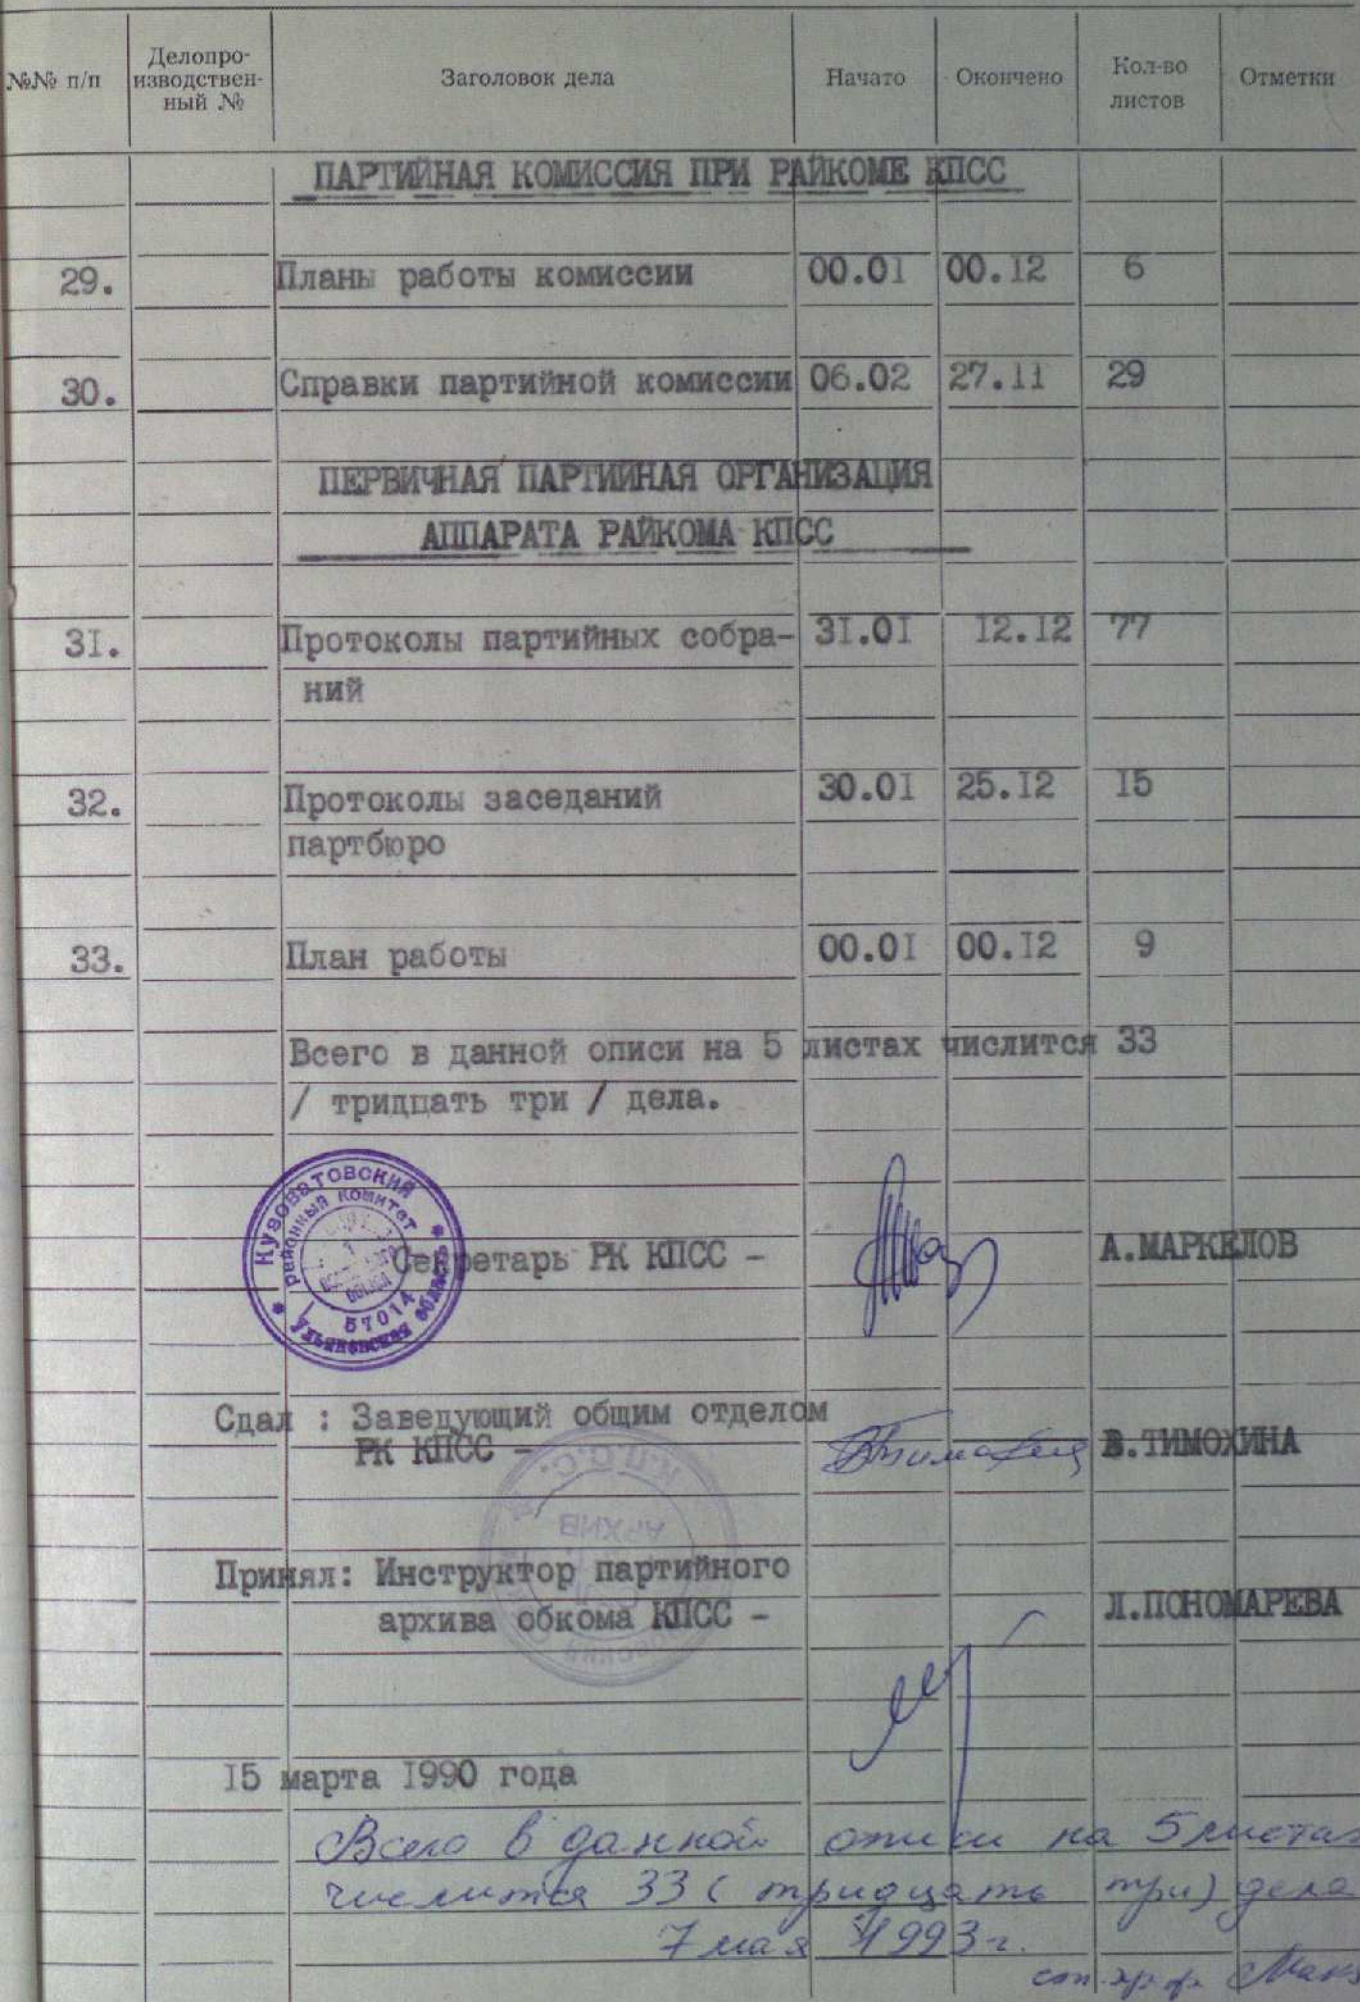 №№ п/п Делопро- Заголовок дела Начато Окончено Кол-во Отметки
изводствен- листов
ный №
ПАРТИЙНАЯ КОМИССИЯ ПРИ РАЙКОМЕ КПСС
29. Планы работы комиссии 00.01 00.12 6
30. Справки партийной комиссии 06.02 27.11 29
ПЕРВИЧНАЯ ПАРТИЙНАЯ ОРГАНИЗАЦИЯ
АППАРАТА РАЙКОМА КПСС
31. Протоколы партийных собра- 31.01 12.12 77
ний
32. Протоколы заседаний 30.01 25.12 15
партбюро
33. План работы 00.01 00.12 9
Всего в данной описи на 5 листах числится 33
/ тридцать три / дела.
Кузоватовский
районный комитет
57014
Ульяновская область
Секретарь РК КПСС - А.МАРКЕЛОВ
Сдал : Заведующий общим отделом
РК КПСС - В.ТИМОХИНА
К.П.С.С.
АРХИВ
Принял: Инструктор партийного
архива обкома КПСС - Л.ПОНОМАРЕВА
15 марта 1990 года
Всего в данной описи на 5 листах
числится 33 ( тридцать три) дела
7 мая 1993г.